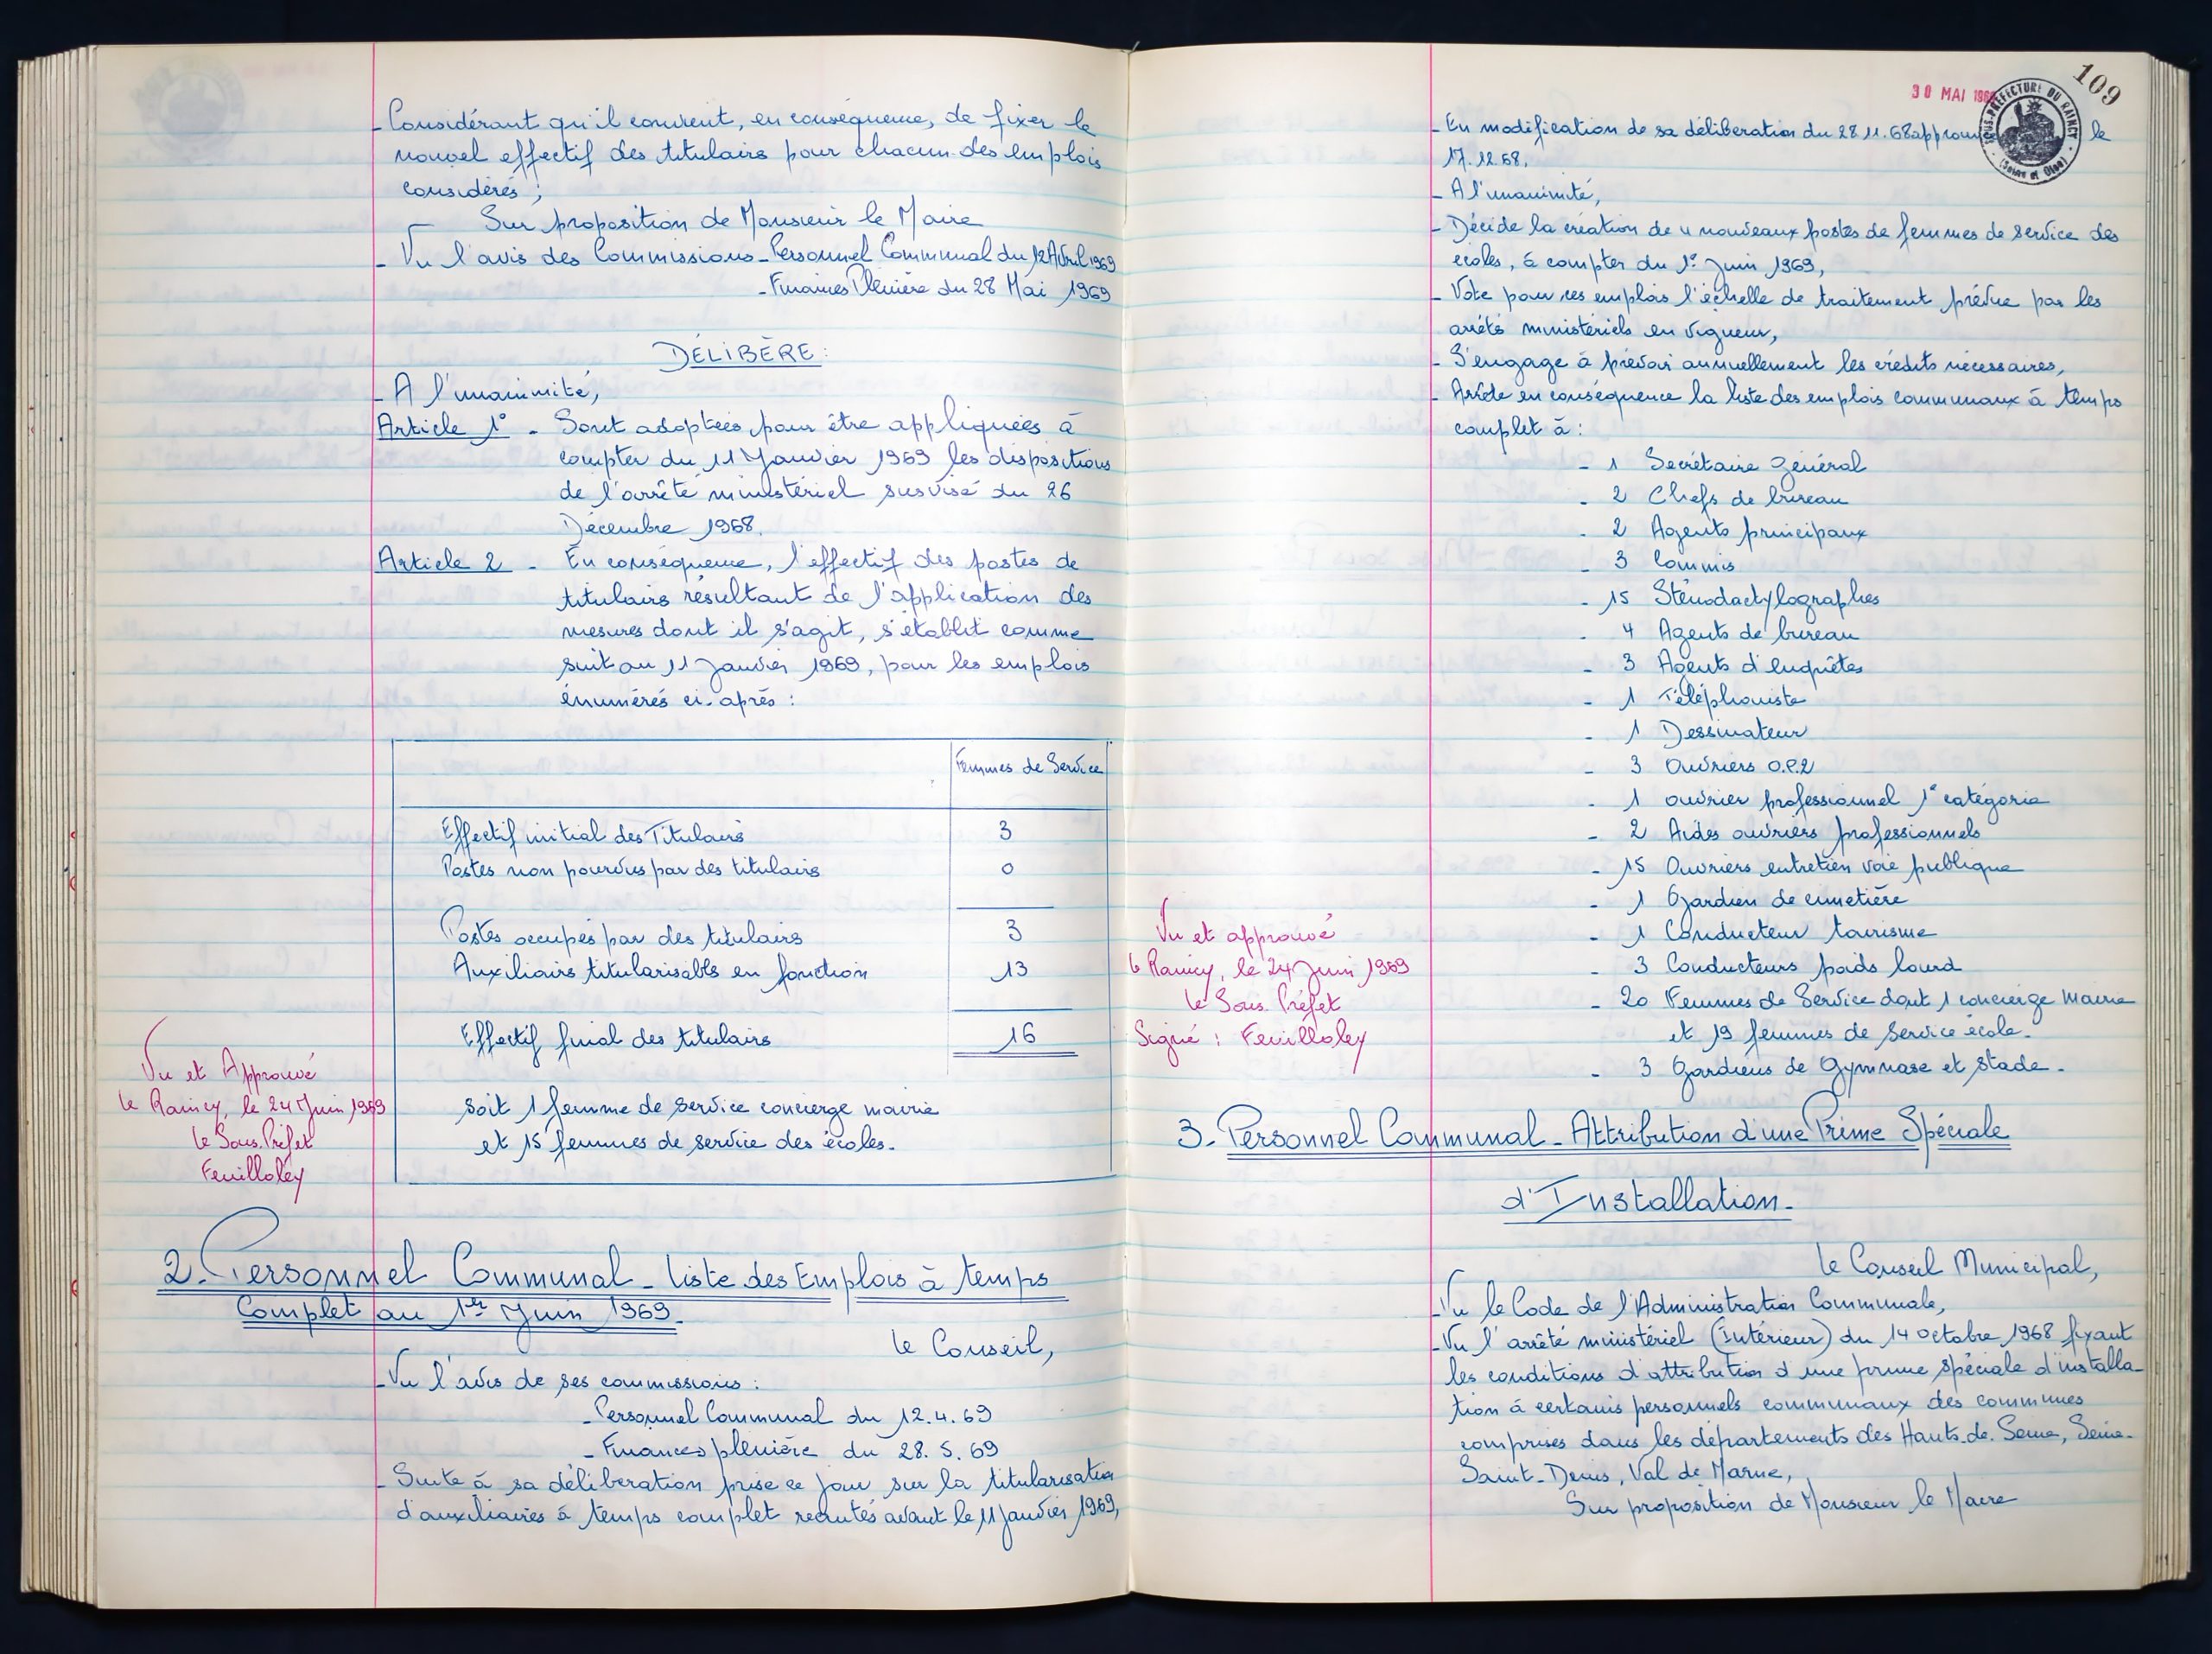 - Considérant qu'il convient, en conséquence, de fixer le
nouvel effectif des titulaires pour chacun des emplois
considérés ;
Sur proposition de Monsieur le Maire
- Vu l'avis des Commissions - Personnel Communal du 12 Avril 1969
- Finances Plénière du 28 Mai 1969
DÉLIBÈRE :
- A l'unanimité,
Article 1° - Sont adoptées pour être appliquées à
compter du 11 Janvier 1969 les dispositions
de l'arrêté ministériel susvisé du 26
Décembre 1968.
Article 2 - En conséquence, l'effectif des postes de
titulaires résultant de l'application des
mesures dont il s'agit, s'établit comme
suit au 11 Janvier 1969, pour les emplois
énumérés ci-après :
Femmes de Service
Effectif initial des Titulaires 3
Postes non pourvus par des titulaires 0
Postes occupés par des titulaires 3
Auxiliaires titularisables en fonction 13
Effectif final des titulaires 16
soit 1 femme de service concierge mairie
et 15 femmes de service des écoles.
Vu et Approuvé
Le Raincy, le 24 Juin 1969
Le Sous-Préfet
Feuilloley
2. Personnel Communal - Liste des Emplois à temps
Complet au 1er Juin 1969.
Le Conseil,
- Vu l'avis de ses commissions :
- Personnel Communal du 12.4.69
- Finances plénière du 28.5.69
- Suite à sa délibération prise ce jour sur la titularisation
d'auxiliaires à temps complet recrutés avant le 11 Janvier 1969,
109
30 MAI 1969
SOUS-PREFECTURE DU RAINCY
(Seine et Oise)
- En modification de sa délibération du 28.11.68 approuvée le
17.12.68,
- A l'unanimité,
- Décide la création de 4 nouveaux postes de femmes de service des
écoles, à compter du 1° Juin 1969,
- Vote pour ces emplois l'échelle de traitement prévue par les
arrêtés ministériels en vigueur,
- S'engage à prévoir annuellement les crédits nécessaires,
- Arrête en conséquence la liste des emplois communaux à temps
complet à :
- 1 Secrétaire Général
- 2 Chefs de bureau
- 2 Agents principaux
- 3 Commis
- 15 Sténodactylographes
- 4 Agents de bureau
- 3 Agents d'enquêtes
- 1 Téléphoniste
- 1 Dessinateur
- 3 Ouvriers O.P.2
- 1 ouvrier professionnel 1° catégorie
- 2 Aides ouvriers professionnels
- 15 Ouvriers entretien voie publique
- 1 Gardien de cimetière
- 1 Conducteur tourisme
- 3 Conducteurs poids lourd
- 20 Femmes de Service dont 1 concierge mairie
et 19 femmes de service école.
- 3 Gardiens de Gymnase et stade.
Vu et approuvé
Le Raincy, le 24 Juin 1969
Le Sous-Préfet
Signé : Feuilloley
3. Personnel Communal - Attribution d'une Prime Spéciale
d'Installation.
Le Conseil Municipal,
- Vu le Code de l'Administration Communale,
- Vu l'arrêté ministériel (Intérieur) du 14 octobre 1968 fixant
les conditions d'attribution d'une prime spéciale d'installa-
tion à certains personnels communaux des communes
comprises dans les départements des Hauts-de-Seine, Seine-
Saint-Denis, Val de Marne,
Sur proposition de Monsieur le Maire